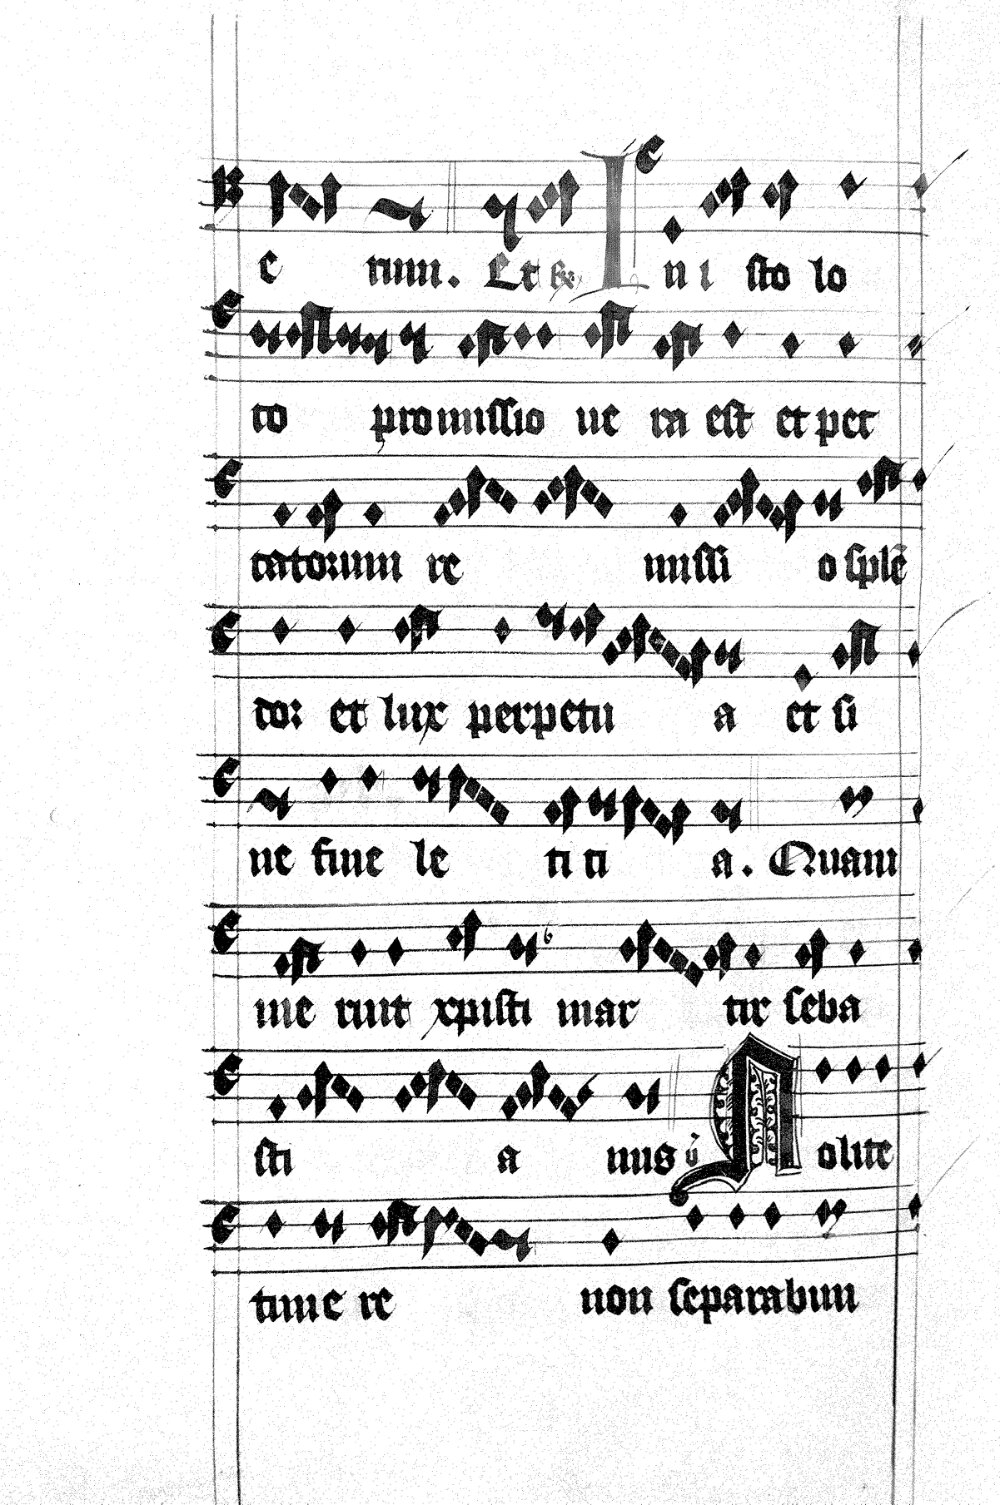 e rum. Et be I n i sto lo
to promissio ue ra est et pec
catorum re missi o splē
dor et lux perpetu a et si
ne fine le ti ti a. Quam
me ruit xpisti mar tir seba
sti a nus v̄ N olite
time re non separabun